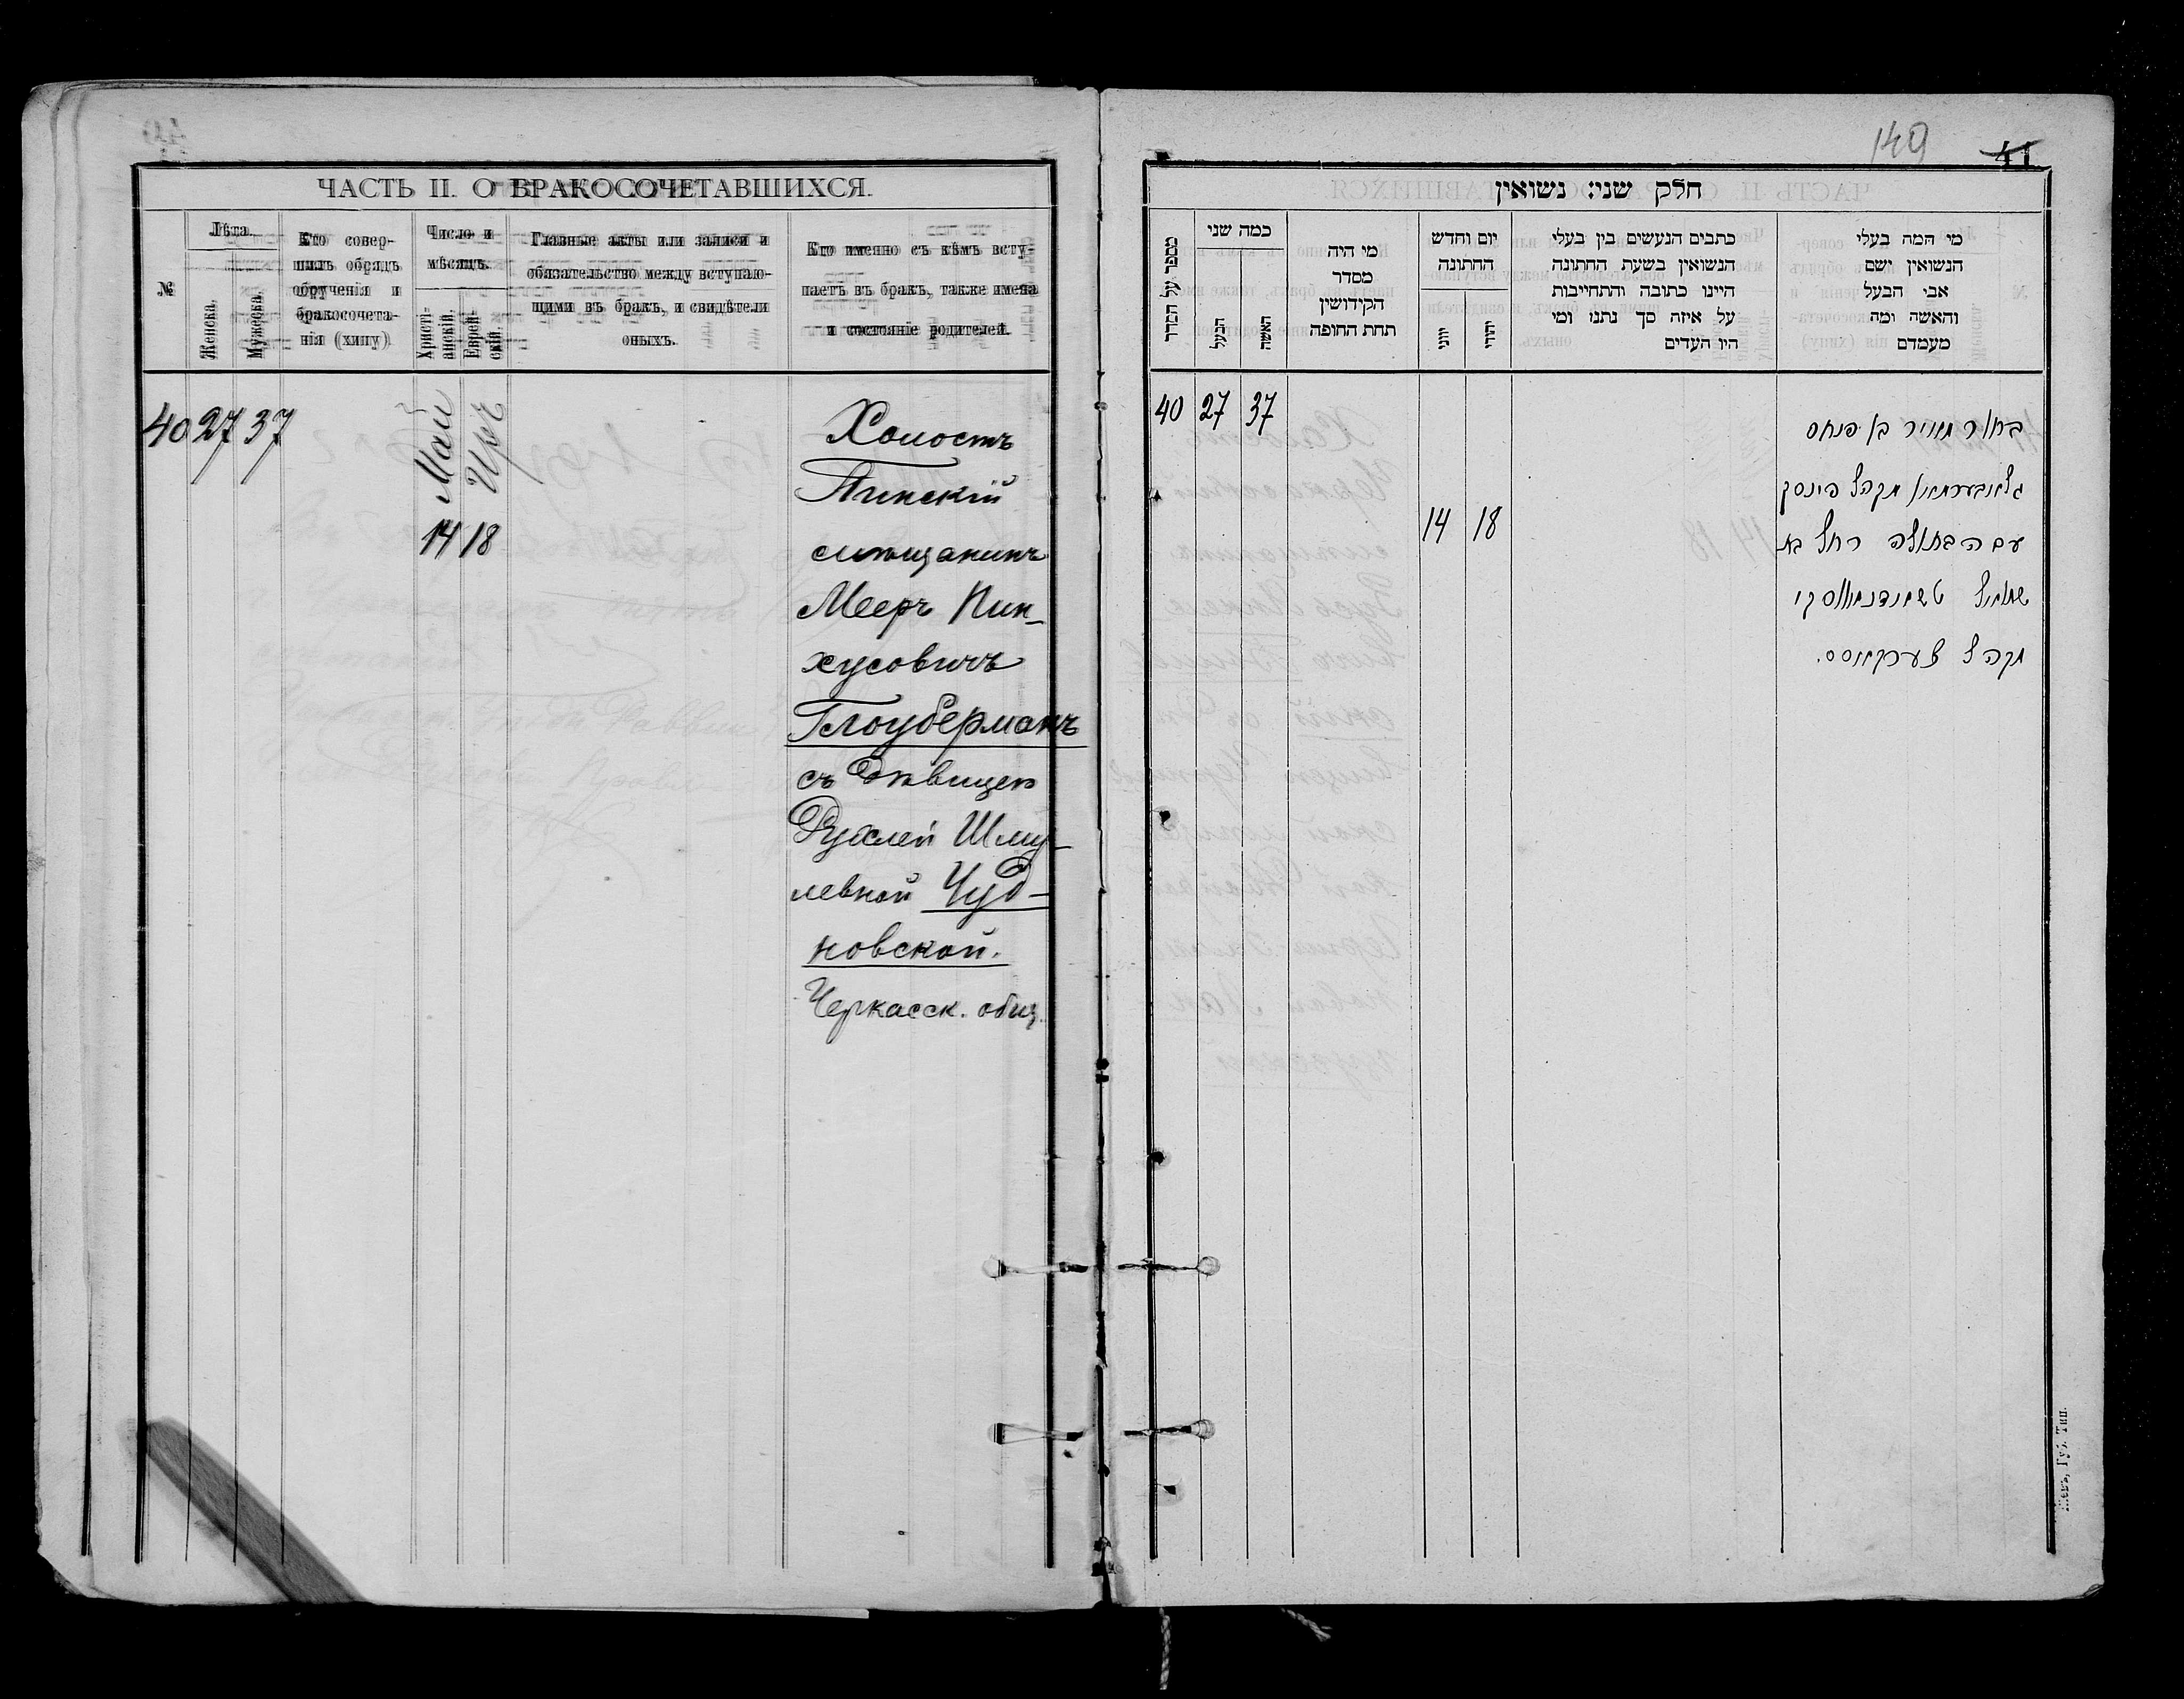 ЧАСТЬ II. О БРАКОСОЧЕТАВШИХСЯ.
№
Лѣта.
Женска.
Мужеска.
Кто совер-
шилъ обрядъ
обрученія и
бракосочета-
нія (хипу)
Число и
мѣсяцъ.
Христі-
анскій.
Еврей-
скій.
Главные акты или записи и
обязательство между вступаю-
щими въ бракъ, и свидѣтели
оныхъ.
Кто именно съ кѣмъ всту-
паетъ въ бракъ, также имена
и состояніе родителей.
40 27 37
Май
Иръ
14 18
Холостъ
Пинскій
мѣщанинъ
Мееръ Пин-
хусовичъ
Глоуберманъ
съ Дѣвицею
Рухлей Шму-
левной Чуд-
новской.
Черкасск. общ.
149
41
חלק שני: נשואין
מספר על הסדר
כמה שני
הבעל
האשה
מי היה
מסדר
הקידושין
תחת החופה
יום וחדש
החתונה
יווני
יהודי
כתבים הנעשים בין בעלי
הנשואין בשעת החתונה
היינו כתובה והתחייבות
על איזה סך נתנו ומי
היו העדים
מי המה בעלי
הנשואין ושם
אבי הבעל
והאשה ומה
מעמדם
40 27 37
14 18
בחור מאיר בן פנחס
גלאובערמאן מקהל פינסק
עם הבתולה רחל בת
שמואל
מקהל
Кіевъ, Губ. Тип.